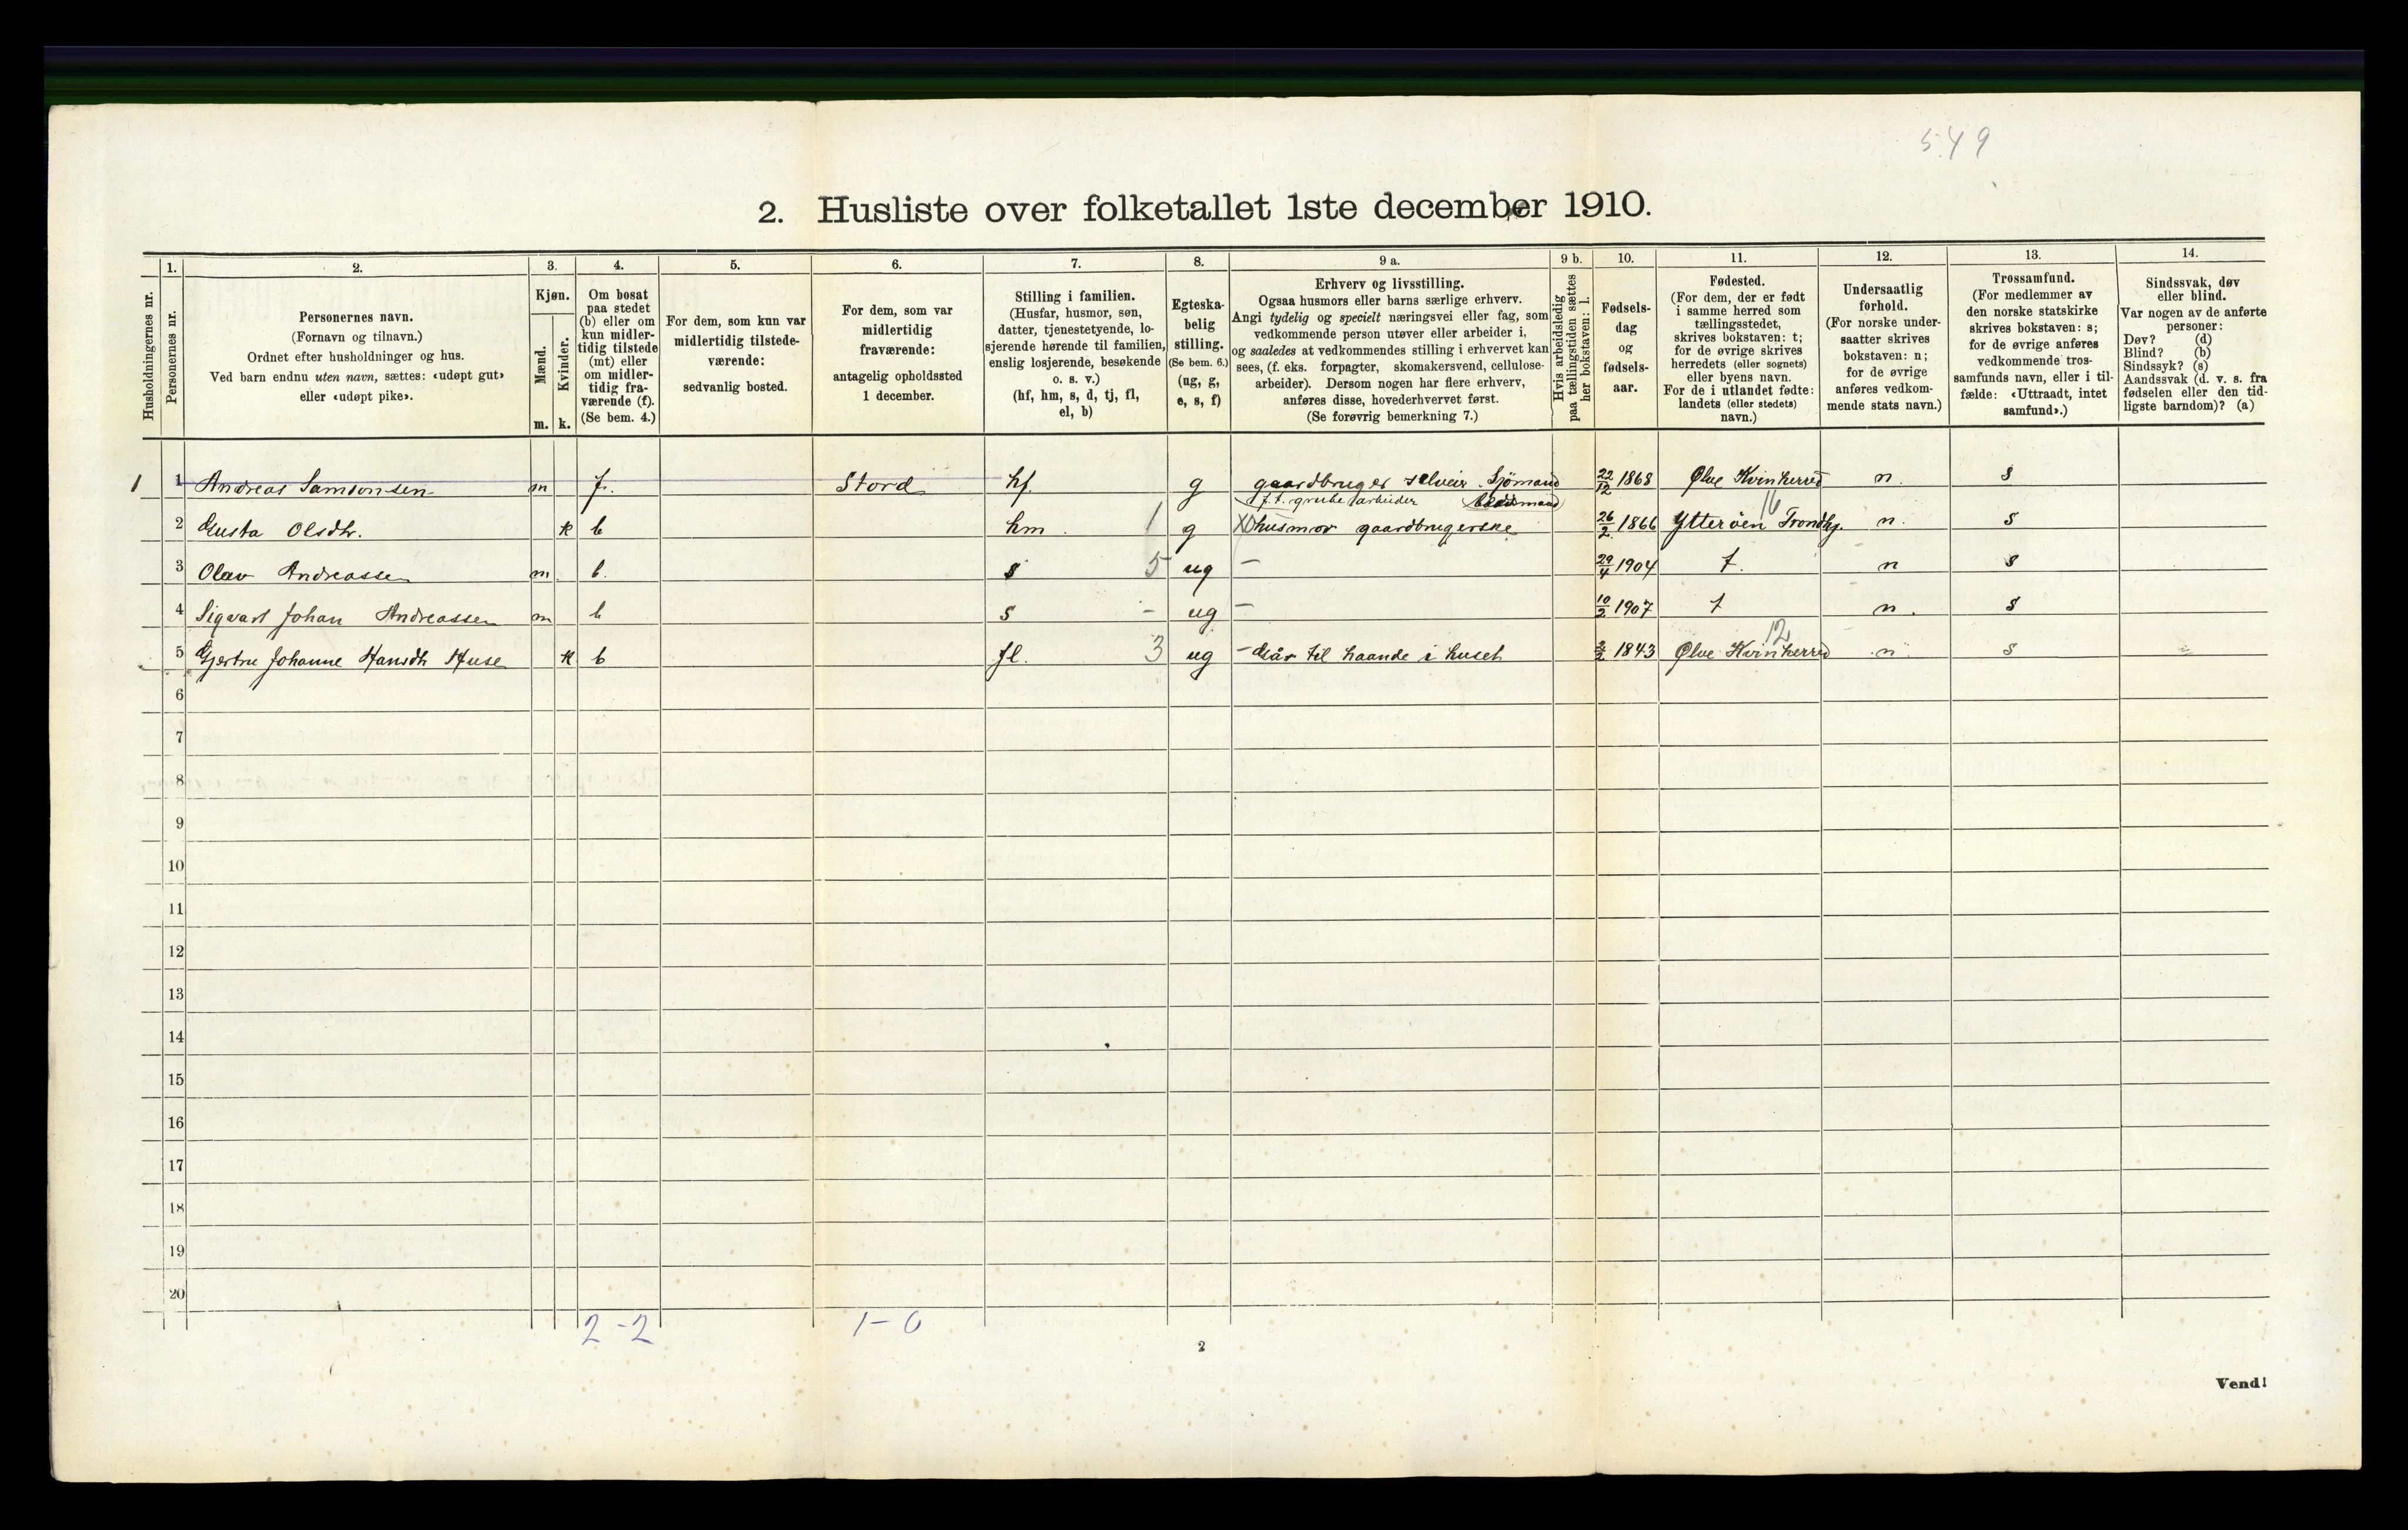 549
2. Husliste over folketallet 1ste december 1910.
Husholdningernes nr.
1.
Personernes nr.
2.
Personernes navn.
(Fornavn og tilnavn.)
Ordnet efter husholdninger og hus.
Ved barn endnu uten navn, sættes: «udøpt gut»
eller «udøpt pike».
3.
Kjøn.
Mænd.
Kvinder.
m. k.
4.
Om bosat
paa stedet
(b) eller om
kun midler-
tidig tilstede
(mt) eller
om midler-
tidig fra-
værende (f).
(Se bem. 4.)
5.
For dem, som kun var
midlertidig tilstede-
værende:
sedvanlig bosted.
6.
For dem, som var
midlertidig
fraværende:
antagelig opholdssted
1 december.
7.
Stilling i familien.
(Husfar, husmor, søn,
datter, tjenestetyende, lo-
sjerende hørende til familien,
enslig losjerende, besøkende
o. s. v.)
(hf, hm, s, d, tj, fl,
el, b)
8.
Egteska-
belig
stilling.
(Se bem. 6.)
(ug, g,
e, s, f)
9 a.
Erhverv og livsstilling.
Ogsaa husmors eller barns særlige erhverv.
Angi tydelig og specielt næringsvei eller fag, som
vedkommende person utøver eller arbeider i,
og saaledes at vedkommendes stilling i erhvervet kan
sees, (f. eks. forpagter, skomakersvend, cellulose-
arbeider). Dersom nogen har flere erhverv,
anføres disse, hovederhvervet først.
(Se forøvrig bemerkning 7.)
9 b.
Hvis arbeidsledig
paa tællingstiden sættes
her bokstaven: l.
10.
Fødsels-
dag
og
fødsels-
aar.
11.
Fødested.
(For dem, der er født
i samme herred som
tællingsstedet,
skrives bokstaven: t;
for de øvrige skrives
herredets (eller sognets)
eller byens navn.
For de i utlandet fødte:
landets (eller stedets)
navn.)
12.
Undersaatlig
forhold.
(For norske under-
saatter skrives
bokstaven: n;
for de øvrige
anføres vedkom-
mende stats navn.)
13.
Trossamfund.
(For medlemmer av
den norske statskirke
skrives bokstaven: s;
for de øvrige anføres
vedkommende tros-
samfunds navn, eller i til-
fælde: «Uttraadt, intet
samfund».)
14.
Sindssvak, døv
eller blind.
Var nogen av de anførte
personer:
Døv? (d)
Blind? (b)
Sindssyk? (s)
Aandssvak (d. v. s. fra
fødselen eller den tid-
ligste barndom)? (a)
1 1 Andreas Samsonsen m f. Stord hf. g gaardbruger selveier Sjömand 22/12 1868 Ølve Kvinherred n. s
f.t. grubearbeider
2 Gusta Olsdtr. k b hm. 1 g X husmor gaardbrugerske 26/2 1866 Ytterøen Trondhj. 16 n. s
3 Olav Andreassen m. b. s 5 ug – 29/4 1904 t. n s
4 Sigvart Johan Andreassen m b s – ug – 10/2 1907 t n. s
5 Gjertru Johanne Hansdtr Huse k b fl. 3 ug – Går til haande i huset 2/2 1843 Ølve Kvinherred 12 n. s
6
7
8
9
10
11
12
13
14
15
16
17
18
19
20
2-2 1-0
2
Vend!